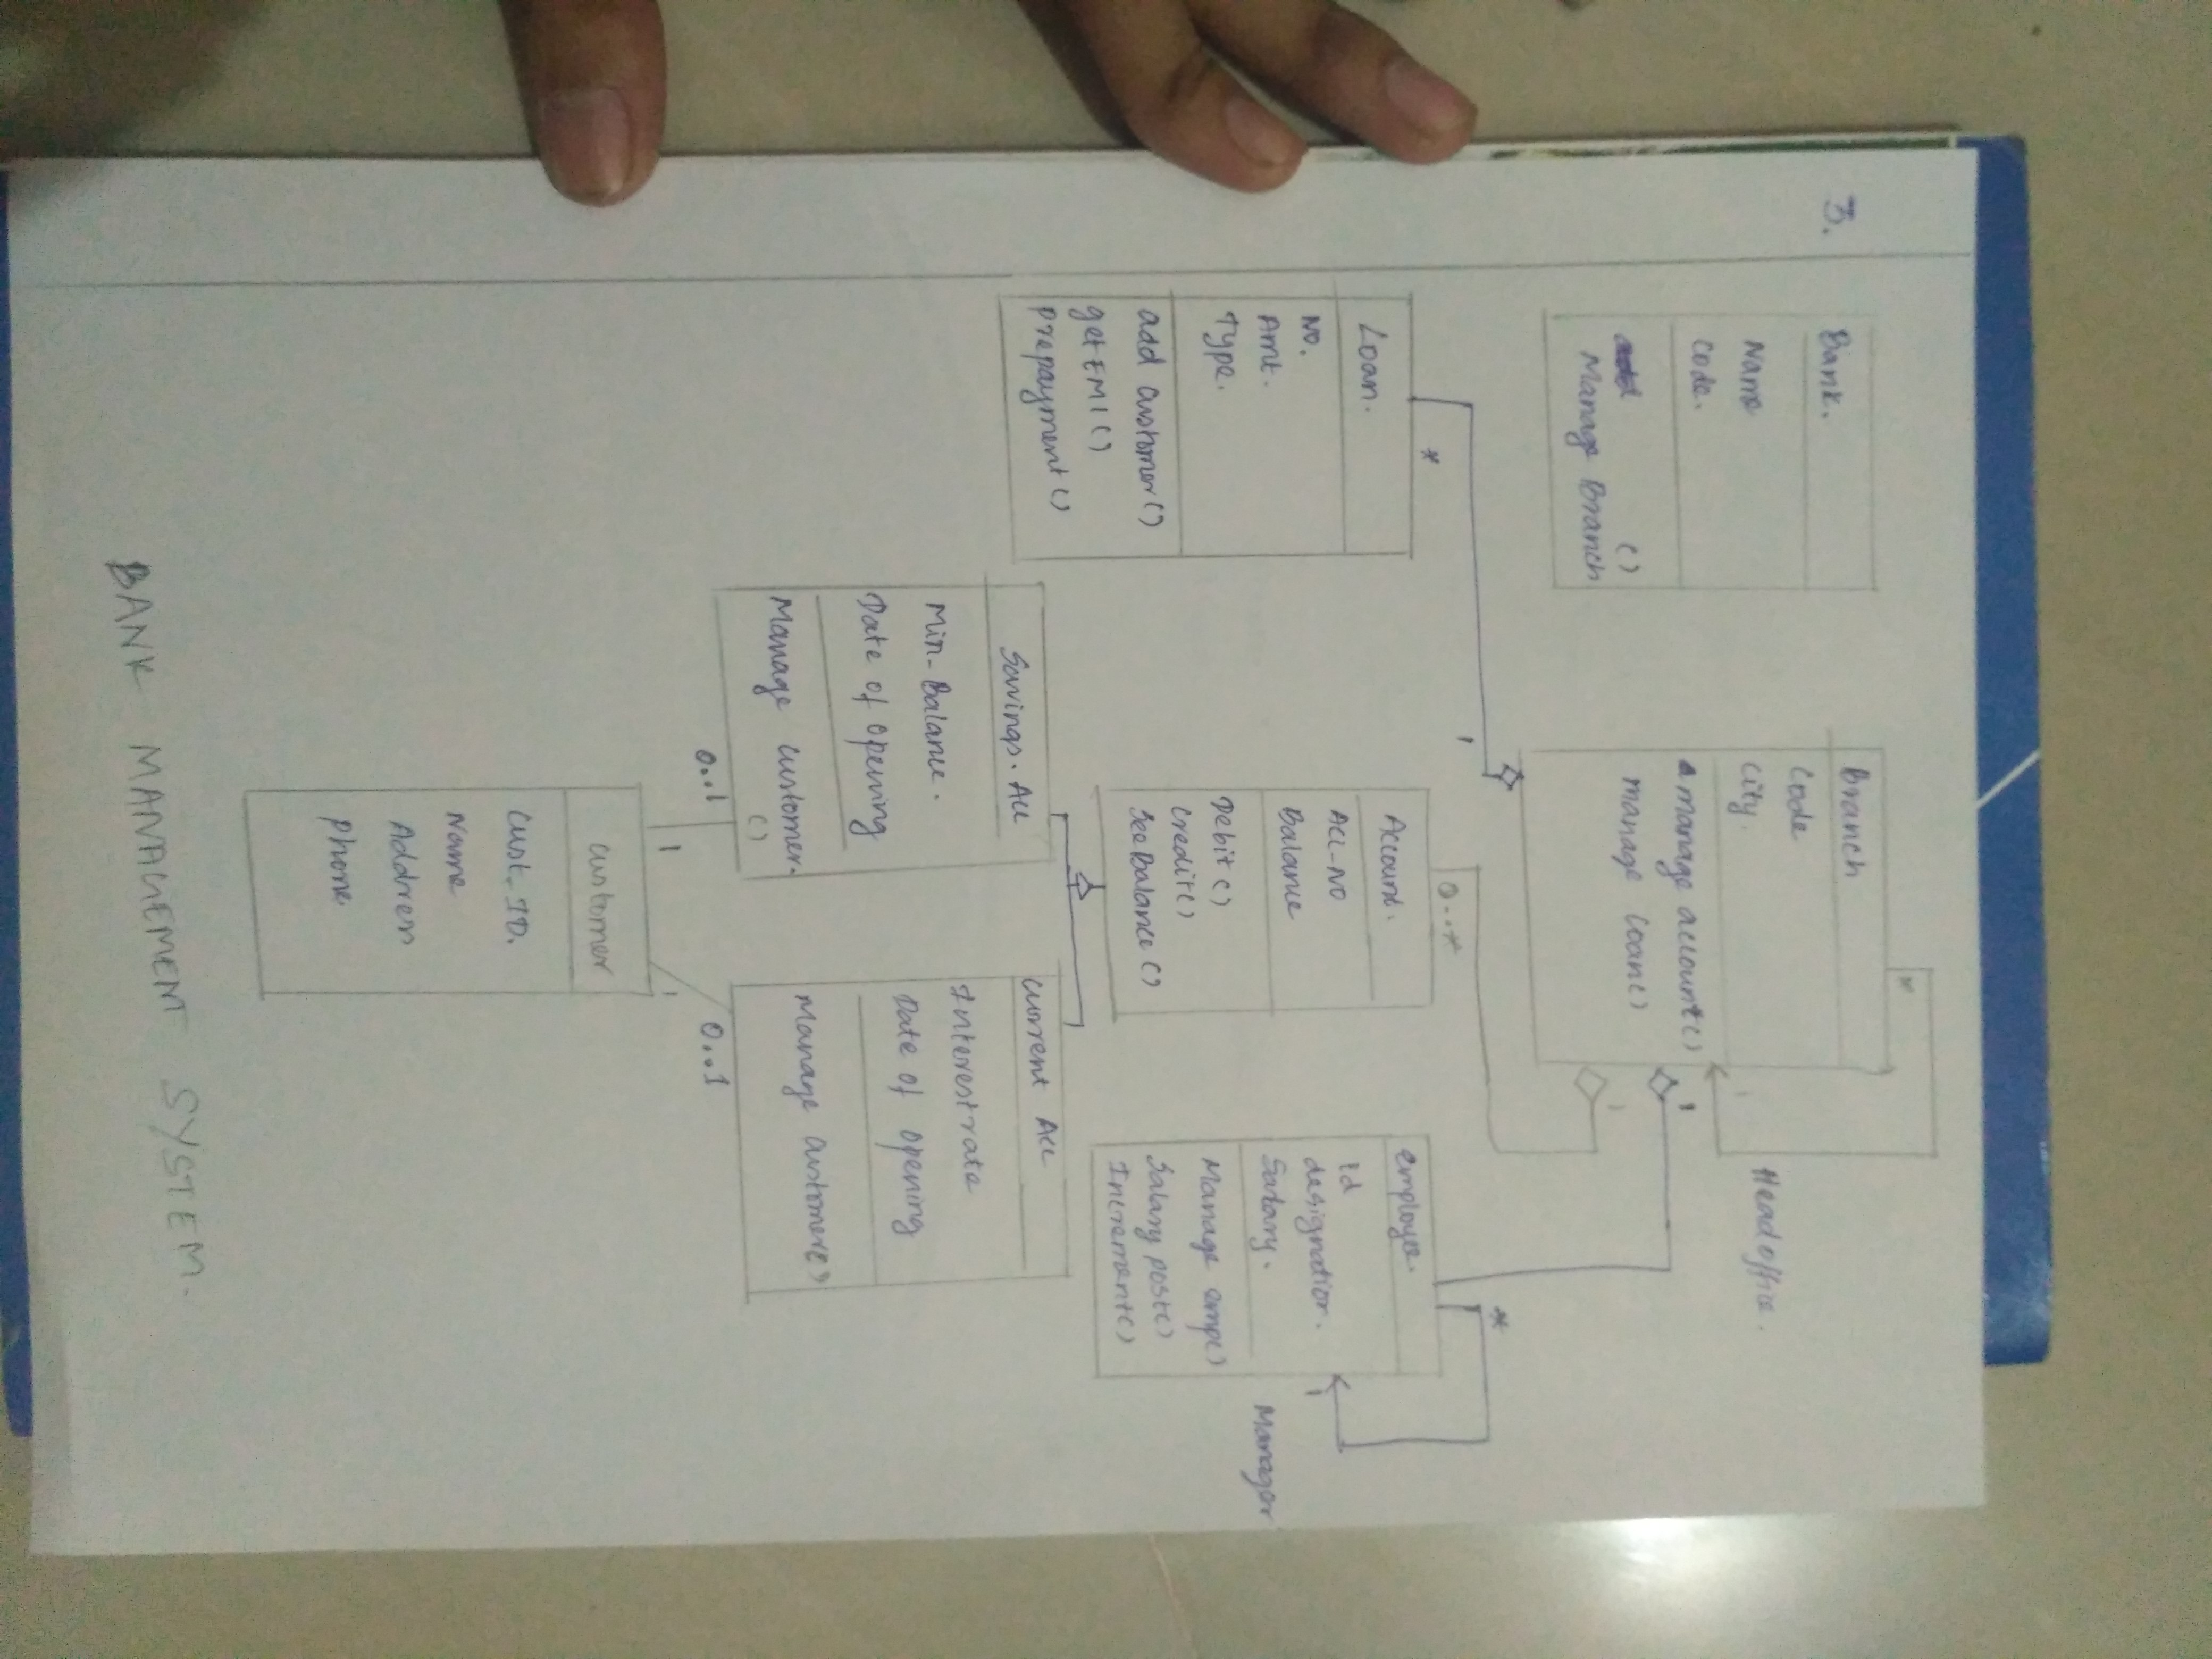 3.
Bank.
Name
Code.
()
Manage Branch
Branch
Code
City.
manage account()
manage loan()
*
1
Head office.
1
1
1
*
Loan.
No.
Amt.
Type.
add customer()
getEMI()
prepayment()
0..*
Account.
Acc-No
Balance
Debit()
Credit()
SeeBalance()
*
employee.
id
designation.
Salary.
Manage emp()
Salary post()
Increment()
1
Manager
Savings. Acc
Min-Balance.
Date of opening
Manage customer.
()
Current Acc
Interestrate
Date of opening
Manage customer()
0..1
0..1
1
1
Customer
Cust-ID.
Name
Address
Phone.
BANK MANAGEMENT SYSTEM.